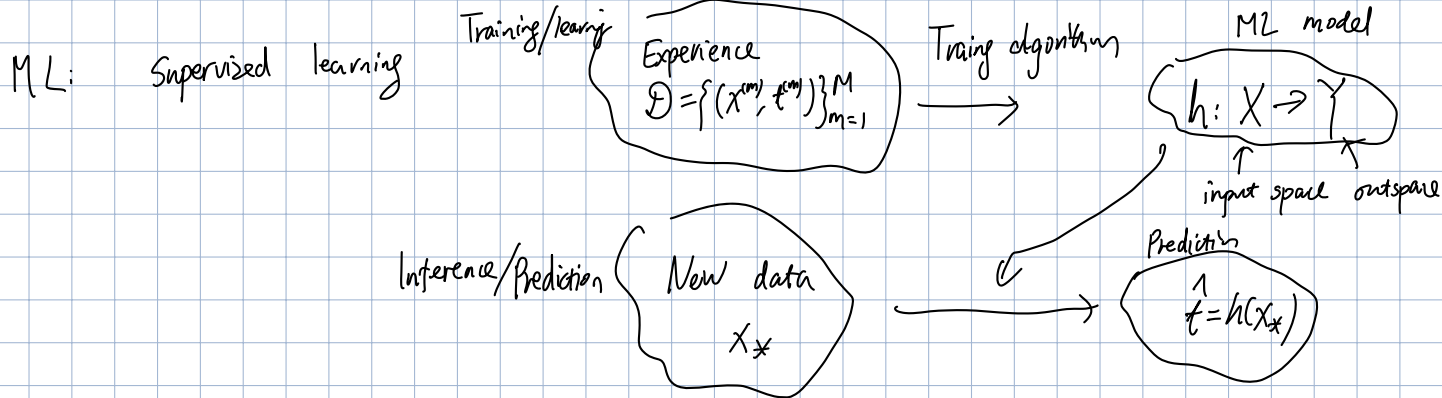 ML: Supervized learning
Training/learnig
Experience
D = {(x^(m), t^(m))}_{m=1}^M
Traing algorithm
ML model
h: X → Y
input space outspace
Inference/Prediction
New data
x_*
Prediction
t̂ = h(x_*)